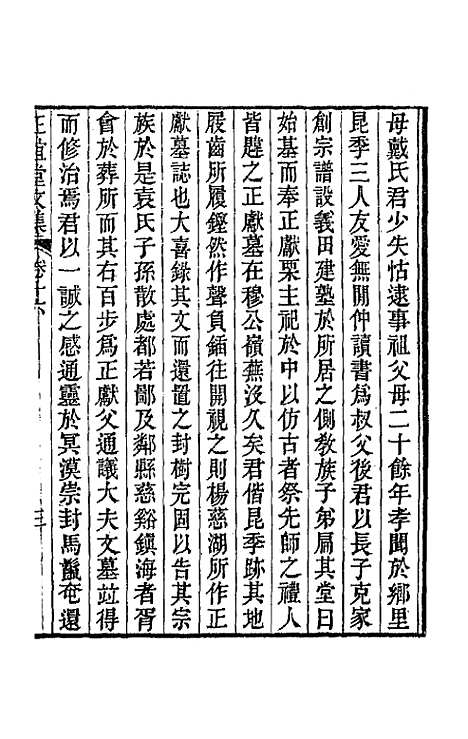 母戴氏君少失怙逮事祖父母二十餘年孝聞於鄉里
昆季三人友愛無閒仲讀書爲叔父後君以長子克家
創宗譜設義田建塾於所居之側敎族子弟扃其堂曰
始基而奉正獻栗主祀於中以仿古者祭先師之禮人
皆韙之正獻墓在穆公嶺蕪沒久矣君偕昆季跡其地
屐齒所履鏗然作聲負鍤往開視之則楊慈湖所作正
獻墓誌也大喜錄其文而還置之封樹完固以告其宗
族於是袁氏子孫散處都若鄞及鄰縣慈谿鎭海者胥
會於葬所而其右百步爲正獻父通議大夫文墓竝得
而修治焉君以一誠之感通靈於冥漠崇封馬鬣窀還